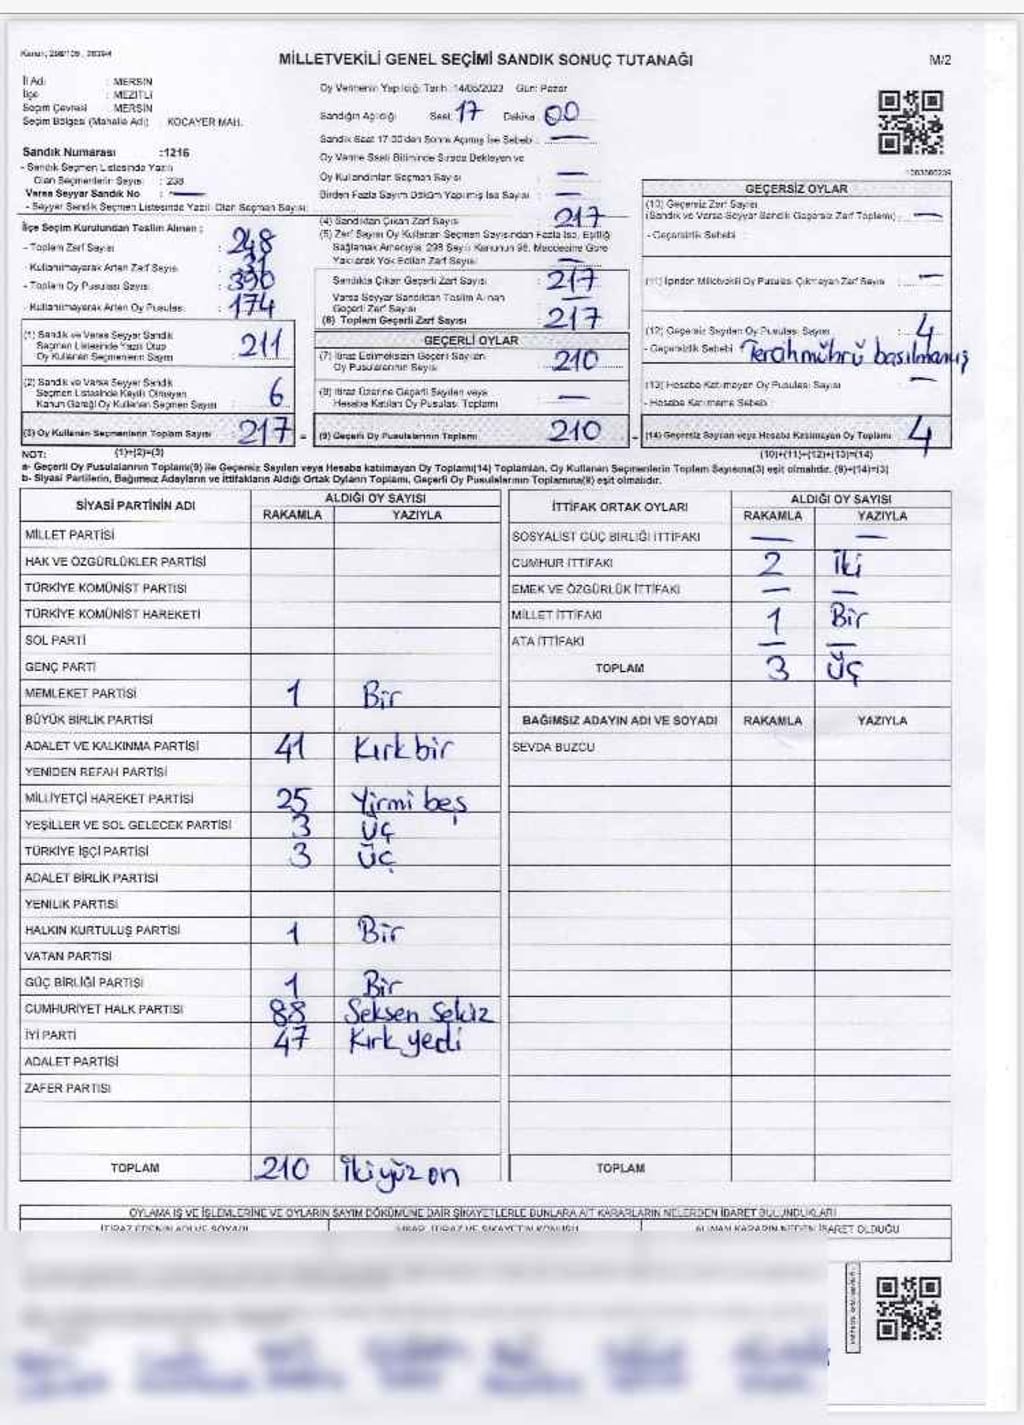 MİLLETVEKİLİ GENEL SEÇİMİ SANDIK SONUÇ TUTANAĞI
M/2
İl Adı : MERSİN
İlçe : MEZİTLİ
Seçim Çevresi : MERSİN
Seçim Bölgesi (Mahalle Adı) : KOCAYER MAH.
Sandık Numarası :1216
- Sandık Seçmen Listesinde Yazılı
Olan Seçmenlerin Sayısı : 238
Varsa Seyyar Sandık No : —
- Seyyar Sandık Seçmen Listesinde Yazılı Olan Seçmen Sayısı
İlçe Seçim Kurulundan Teslim Alınan ;
- Toplam Zarf Sayısı : 248
- Kullanılmayarak Artan Zarf Sayısı : 31
- Toplam Oy Pusulası Sayısı : 390
- Kullanılmayarak Artan Oy Pusulası : 174
(1) Sandık ve Varsa Seyyar Sandık
Seçmen Listesinde Yazılı Olup
Oy Kullanan Seçmenlerin Sayısı : 211
(2) Sandık ve Varsa Seyyar Sandık
Seçmen Listesinde Kayıtlı Olmayan
Kanun Gereği Oy Kullanan Seçmen Sayısı 6
(3) Oy Kullanan Seçmenlerin Toplam Sayısı 217 =
(1)+(2)=(3)
Oy Vermenin Yapıldığı Tarih : 14/05/2023 Gün: Pazar
Sandığın Açıldığı Saat: 17 Dakika: 00
Sandık Saat 17:00'den Sonra Açılmış İse Sebebi : —
Oy Verme Saati Bitiminde Sırada Bekleyen ve
Oy Kullandırılan Seçmen Sayısı : —
Birden Fazla Sayım Döküm Yapılmış İse Sayısı : —
(4) Sandıktan Çıkan Zarf Sayısı : 217
(5) Zarf Sayısı Oy Kullanan Seçmen Sayısından Fazla İse, Eşitliği
Sağlamak Amacıyla, 298 Sayılı Kanunun 98. Maddesine Göre
Yakılarak Yok Edilen Zarf Sayısı : —
Sandıkta Çıkan Geçerli Zarf Sayısı : 217
Varsa Seyyar Sandıktan Teslim Alınan
Geçerli Zarf Sayısı : —
(6) Toplam Geçerli Zarf Sayısı : 217
GEÇERLİ OYLAR
(7) İtiraz Edilmeksizin Geçerli Sayılan
Oy Pusulalarının Sayısı : 210
(8) İtiraz Üzerine Geçerli Sayılan veya
Hesaba Katılan Oy Pusulası Toplamı : —
(9) Geçerli Oy Pusulalarının Toplamı 210
GEÇERSİZ OYLAR
(10) Geçersiz Zarf Sayısı
(Sandık ve Varsa Seyyar Sandık Geçersiz Zarf Toplamı) : —
- Geçersizlik Sebebi :
(11) İçinden Milletvekili Oy Pusulası Çıkmayan Zarf Sayısı : —
(12) Geçersiz Sayılan Oy Pusulası Sayısı : 4
- Geçersizlik Sebebi : Tercihmührü basılmamış
(13) Hesaba Katılmayan Oy Pusulası Sayısı : —
- Hesaba Katılmama Sebebi :
(14) Geçersiz Sayılan veya Hesaba Katılmayan Oy Toplamı 4
(10)+(11)+(12)+(13)=(14)
NOT:
a- Geçerli Oy Pusulalarının Toplamı(9) ile Geçersiz Sayılan veya Hesaba katılmayan Oy Toplamı(14) Toplamları, Oy Kullanan Seçmenlerin Toplam Sayısına(3) eşit olmalıdır. (9)+(14)=(3)
b- Siyasi Partilerin, Bağımsız Adayların ve İttifakların Aldığı Ortak Oyların Toplamı, Geçerli Oy Pusulalarının Toplamına(9) eşit olmalıdır.
SİYASİ PARTİNİN ADI ALDIĞI OY SAYISI
RAKAMLA YAZIYLA
MİLLET PARTİSİ
HAK VE ÖZGÜRLÜKLER PARTİSİ
TÜRKİYE KOMÜNİST PARTİSİ
TÜRKİYE KOMÜNİST HAREKETİ
SOL PARTİ
GENÇ PARTİ
MEMLEKET PARTİSİ 1 Bir
BÜYÜK BİRLİK PARTİSİ
ADALET VE KALKINMA PARTİSİ 41 Kırk bir
YENİDEN REFAH PARTİSİ
MİLLİYETÇİ HAREKET PARTİSİ 25 Yirmi beş
YEŞİLLER VE SOL GELECEK PARTİSİ 3 Üç
TÜRKİYE İŞÇİ PARTİSİ 3 Üç
ADALET BİRLİK PARTİSİ
YENİLİK PARTİSİ
HALKIN KURTULUŞ PARTİSİ 1 Bir
VATAN PARTİSİ
GÜÇ BİRLİĞİ PARTİSİ 1 Bir
CUMHURİYET HALK PARTİSİ 88 Seksen Sekiz
İYİ PARTİ 47 Kırk yedi
ADALET PARTİSİ
ZAFER PARTİSİ
TOPLAM 210 İkiyüz on
İTTİFAK ORTAK OYLARI ALDIĞI OY SAYISI
RAKAMLA YAZIYLA
SOSYALİST GÜÇ BİRLİĞİ İTTİFAKI — —
CUMHUR İTTİFAKI 2 İki
EMEK VE ÖZGÜRLÜK İTTİFAKI — —
MİLLET İTTİFAKI 1 Bir
ATA İTTİFAKI — —
TOPLAM 3 Üç
BAĞIMSIZ ADAYIN ADI VE SOYADI RAKAMLA YAZIYLA
SEVDA BUZCU
TOPLAM
OYLAMA İŞ VE İŞLEMLERİNE VE OYLARIN SAYIM DÖKÜMÜNE DAİR ŞİKAYETLERLE BUNLARA AİT KARARLARIN NELERDEN İBARET BULUNDUKLARI
İTİRAZ EDENİN ADI VE SOYADI İHBAR, İTİRAZ VE ŞİKAYETİN KONUSU ALINAN KARARIN NEDEN İBARET OLDUĞU